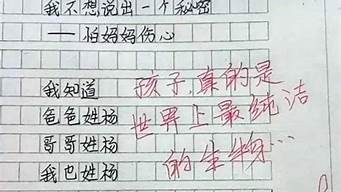 我不想说出一个秘密
——怕妈妈伤心
我知道
爸爸姓杨
哥哥姓杨
我也姓杨
孩子,真的是
世界上最纯洁
的生物…